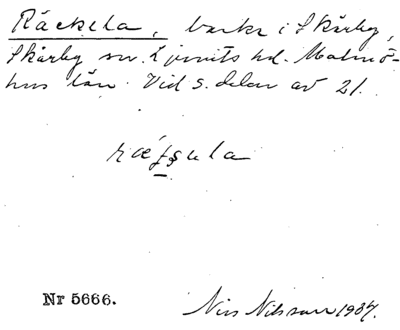 Räckela, backe i Skårby,
Skårby sn. Ljunits hd. Malmö-
hus län. Vid s. delen av 21.
Nr 5666.
Nils Nilsson 1934.